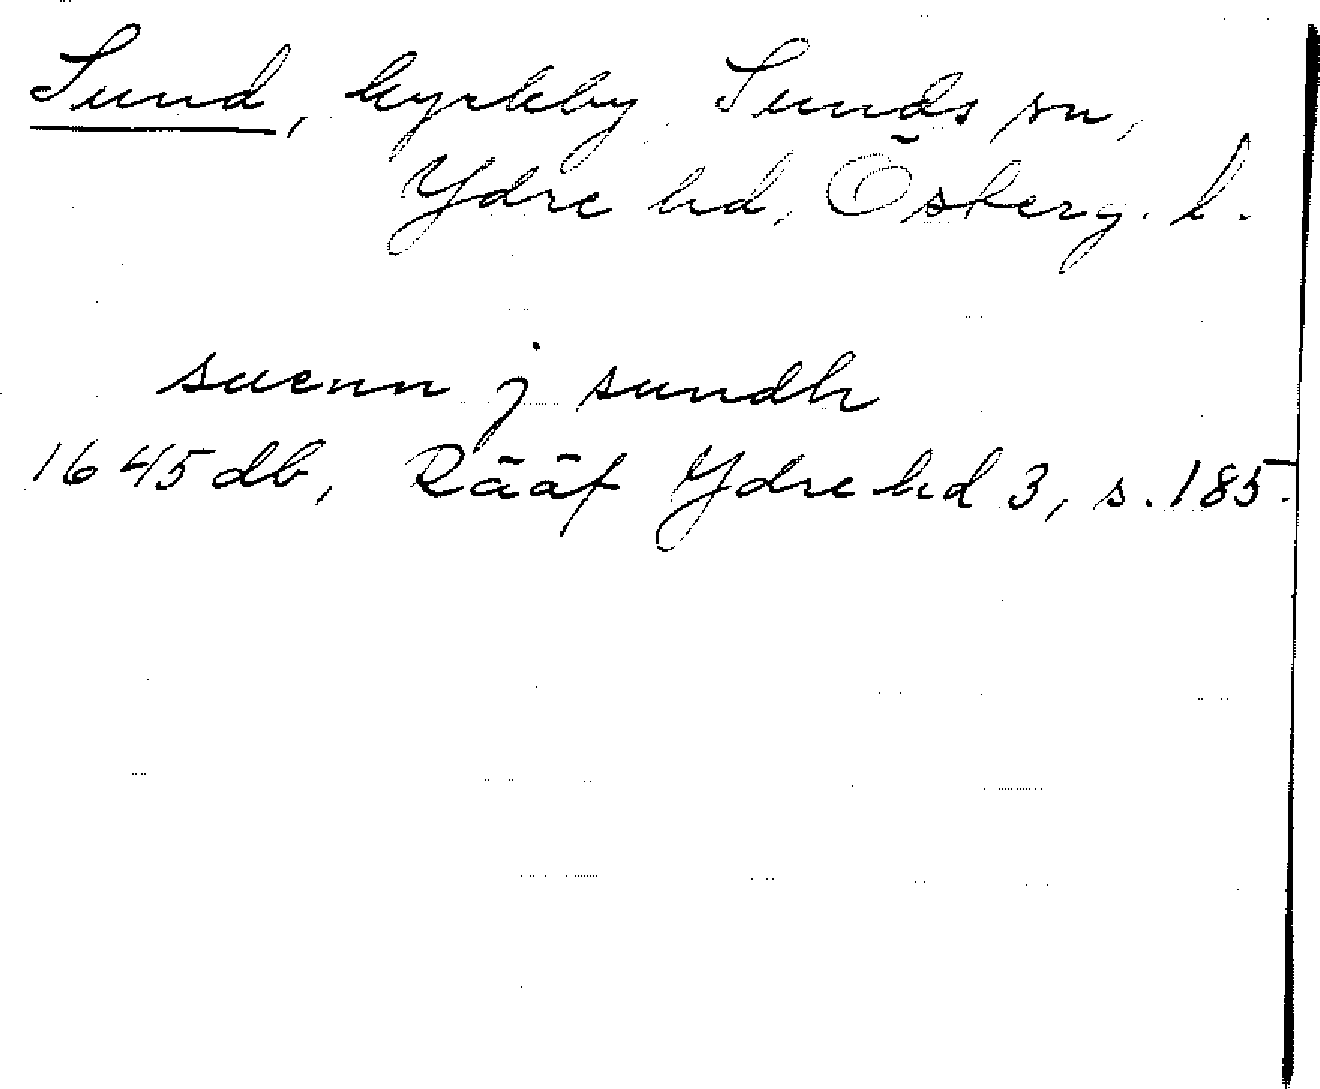 Sund, kyrkby Sunds sn,
Ydre hd, Österg. l.
suenn j sundh
1645 db, Rääf Ydre hd 3, s. 185.